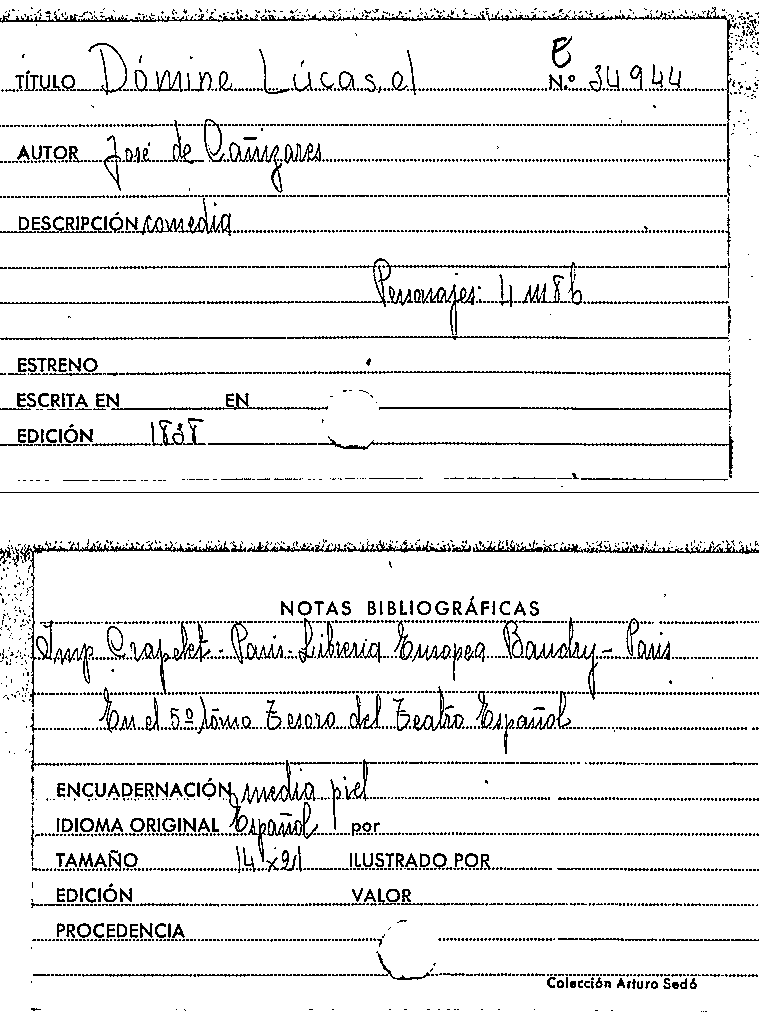 TÍTULO Dómine Lúcas, el E N.º 34944
AUTOR José de Cañizares
DESCRIPCIÓN comedia
Personajes: 4 m 8 h
ESTRENO
ESCRITA EN EN
EDICIÓN 1838
NOTAS BIBLIOGRÁFICAS
Imp Crapelet - Paris - Libreria Europea Baudry - Paris
En el 5º tomo Tesoro del Teatro Español
ENCUADERNACIÓN media piel
IDIOMA ORIGINAL Español por
TAMAÑO 14 x 21 ILUSTRADO POR
EDICIÓN VALOR
PROCEDENCIA
Colección Arturo Sedó